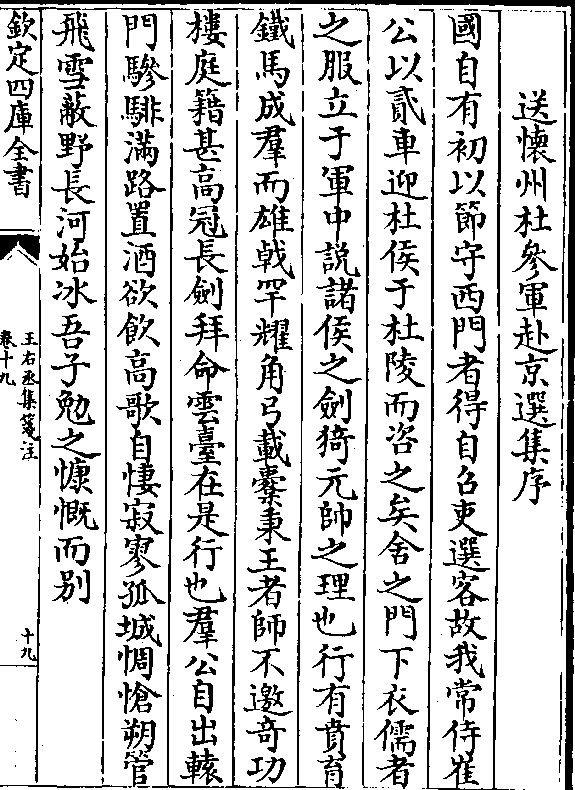 送懷州杜參軍赴京選集序
國自有初以節守西門者得自召吏選客故我常侍崔
公以貳車迎杜侯于杜陵而咨之矣舍之門下衣儒者
之服立于軍中説諸侯之劍猗元帥之理也行有賁育
鐵馬成羣而雄戟罕耀角弓載櫜秉王者師不邀奇功
樓庭籍甚高冠長劍拜命雲臺在是行也羣公自出轅
門驂騑滿路置酒欲飲高歌自悽寂寥孤城惆愴朔管
飛雪蔽野長河始冰吾子勉之慷慨而别
欽定四庫全書
王右丞集箋注
卷十九
十九